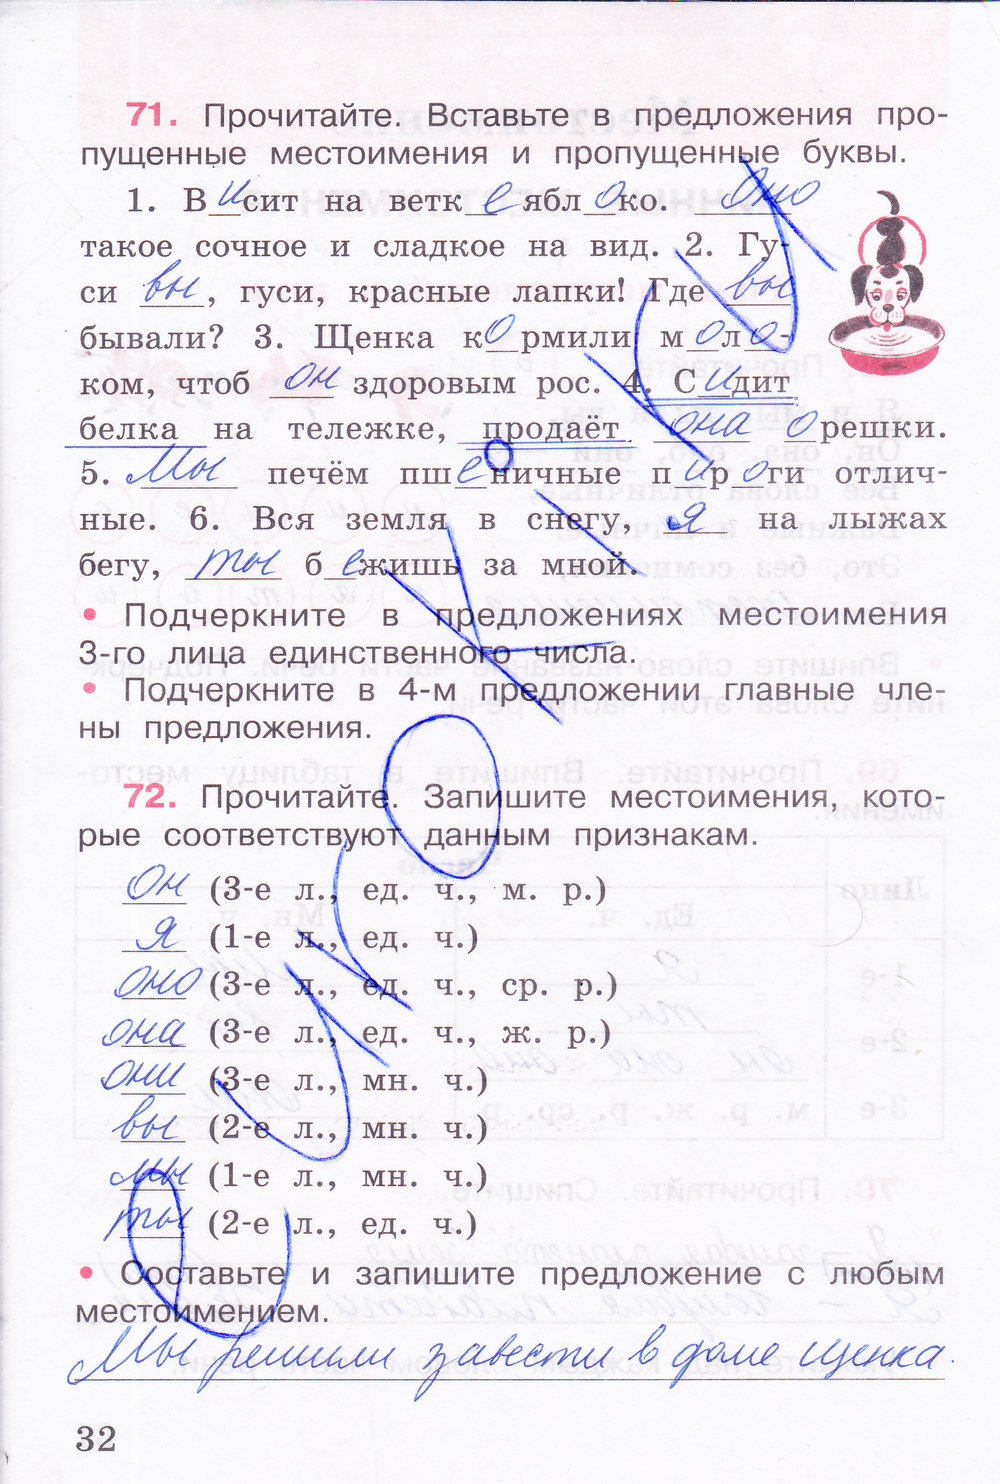 71. Прочитайте. Вставьте в предложения про-
пущенные местоимения и пропущенные буквы.
1. Висит на ветке яблоко. Оно
такое сочное и сладкое на вид. 2. Гу-
си вы, гуси, красные лапки! Где вы
бывали? 3. Щенка кормили моло-
ком, чтоб он здоровым рос. 4. Сидит
белка на тележке, продаёт она орешки.
5. Мы печём пшеничные пироги отлич-
ные. 6. Вся земля в снегу, я на лыжах
бегу, ты бежишь за мной.
• Подчеркните в предложениях местоимения
3-го лица единственного числа.
• Подчеркните в 4-м предложении главные чле-
ны предложения.
72. Прочитайте. Запишите местоимения, кото-
рые соответствуют данным признакам.
он (3-е л., ед. ч., м. р.)
я (1-е л., ед. ч.)
оно (3-е л., ед. ч., ср. р.)
она (3-е л., ед. ч., ж. р.)
они (3-е л., мн. ч.)
вы (2-е л., мн. ч.)
мы (1-е л., мн. ч.)
ты (2-е л., ед. ч.)
• Составьте и запишите предложение с любым
местоимением.
Мы решили завести в доме щенка.
32